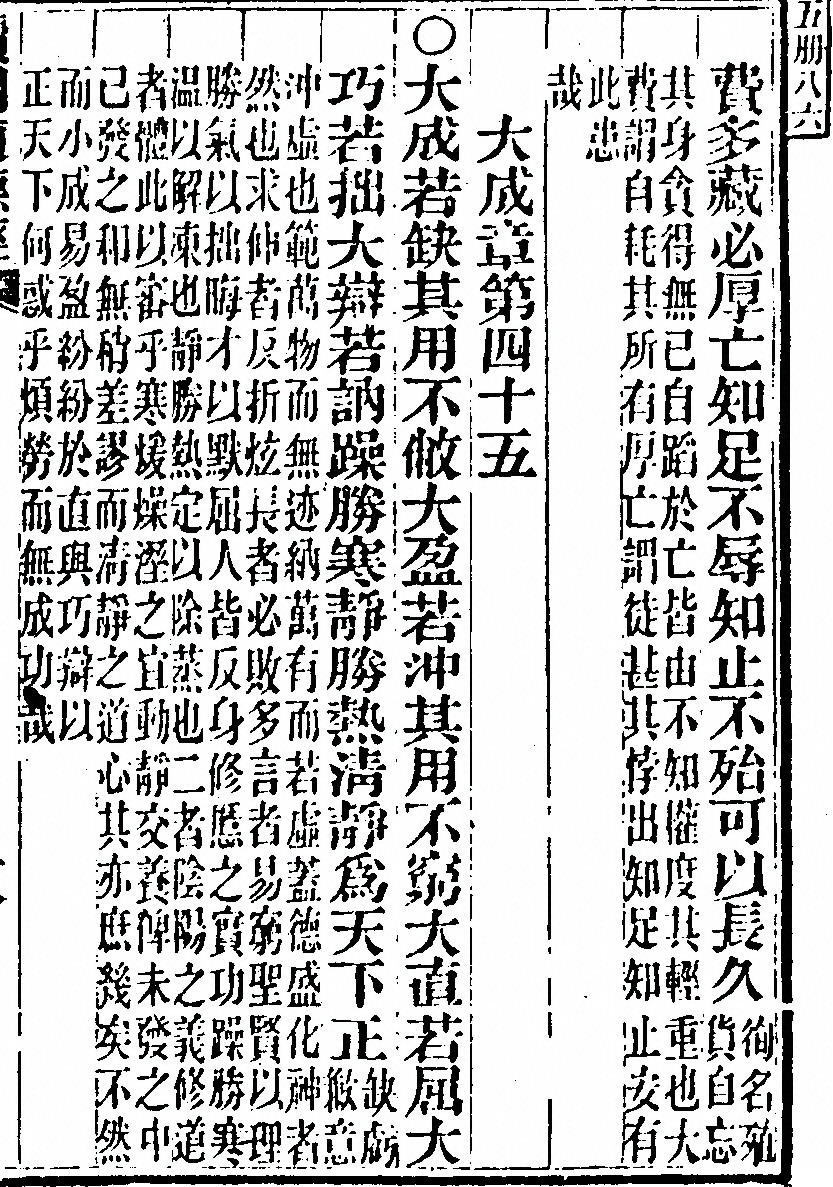 五册八六
費多藏必厚亡知足不辱知止不殆可以長久徇名殖貨自忘
其身貪得無已自蹈於亡皆由不知權度其輕重也大
費謂自耗其所有厚亡謂徒甚其悖出知足知止安有
此患
哉
大成章第四十五
○大成若缺其用不敝大盈若沖其用不窮大直若屈大
巧若拙大辯若訥躁勝寒靜勝熱清靜爲天下正缺虧敝意
沖虛也範萬物而無迹納萬有而若虛蓋德盛化神者
然也求伸者反折炫長者必敗多言者易窮聖賢以理
勝氣以拙晦才以默屈人皆反身修慝之實功躁勝寒
温以解凍也靜勝熱定以除蒸也二者陰陽之義修道
者體此以審乎寒煖燥溼之宜動靜交養俾未發之中
已發之和無稍差謬而清靜之道心其亦庶幾矣不然
而小成易盈紛紛於直與巧辯以
正天下何惑乎煩勞而無成功哉